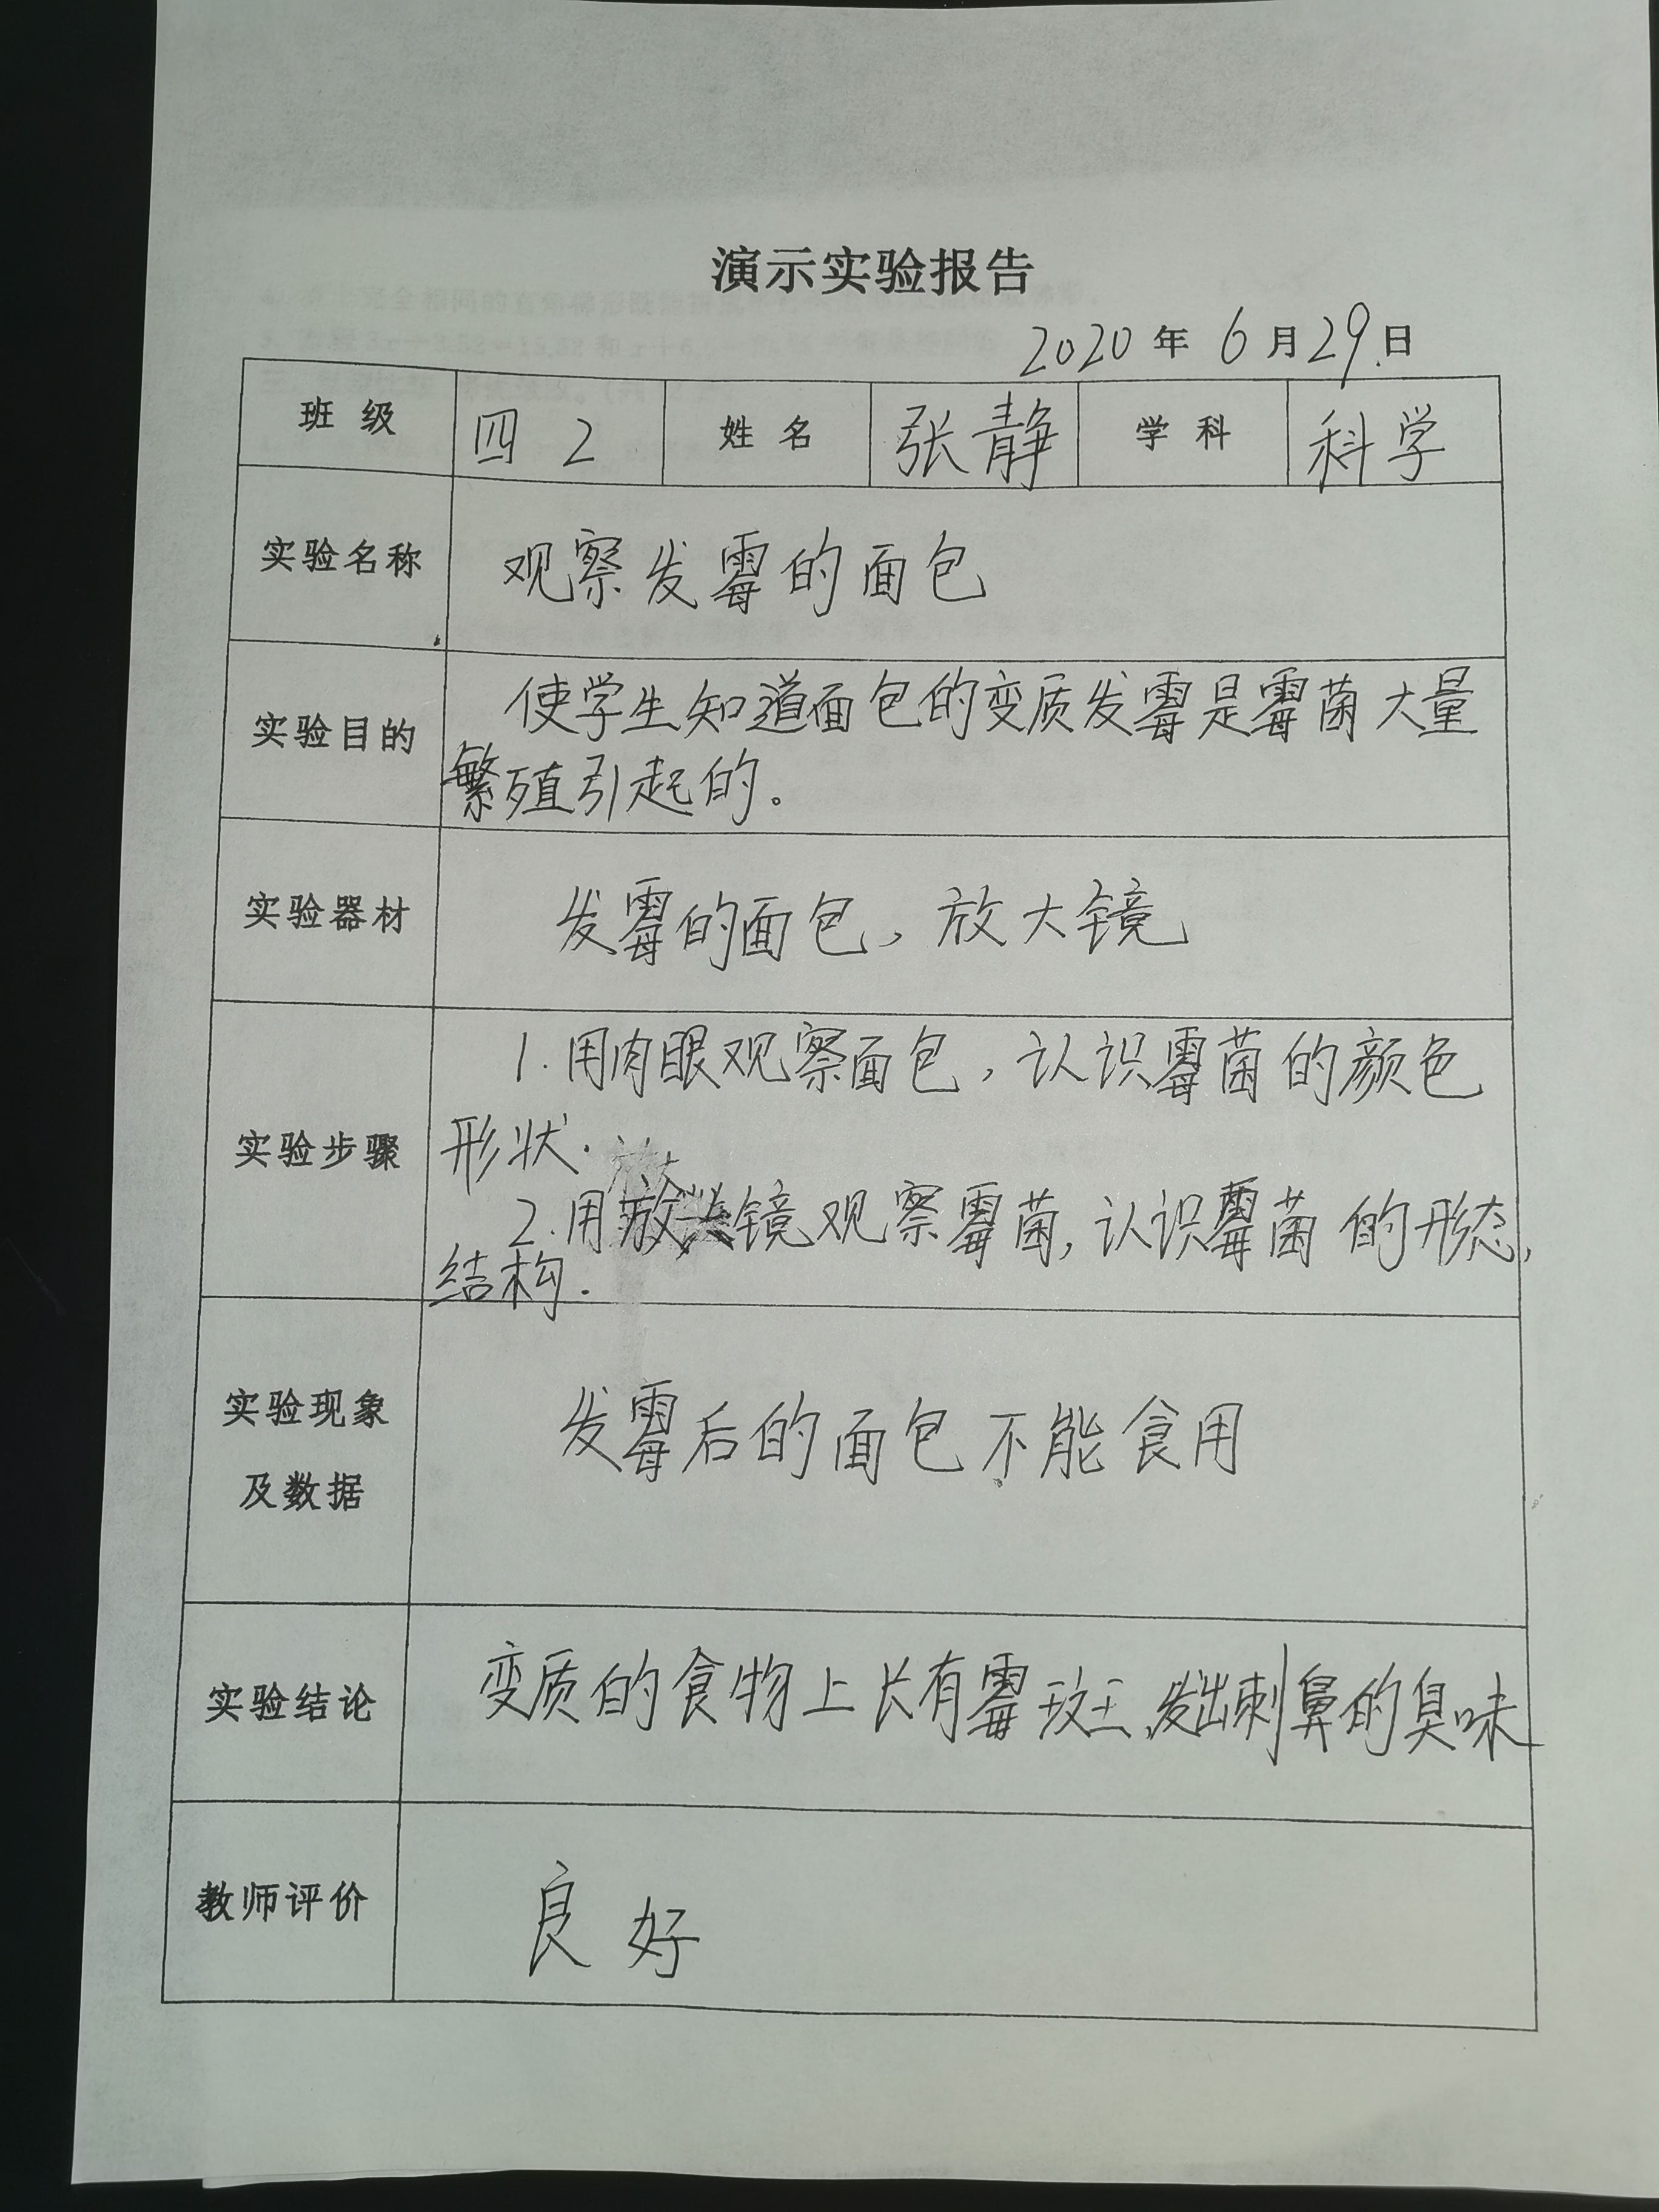 演示实验报告
2020年6月29日
班级 四2 姓名 张静 学科 科学
实验名称 观察发霉的面包
实验目的 使学生知道面包的变质发霉是霉菌大量
繁殖引起的。
实验器材 发霉的面包，放大镜
实验步骤 1.用肉眼观察面包，认识霉菌的颜色
形状.
2.用放大镜观察霉菌,认识霉菌的形态,
结构.
实验现象
及数据 发霉后的面包不能食用
实验结论 变质的食物上长有霉斑,发出刺鼻的臭味
教师评价 良好